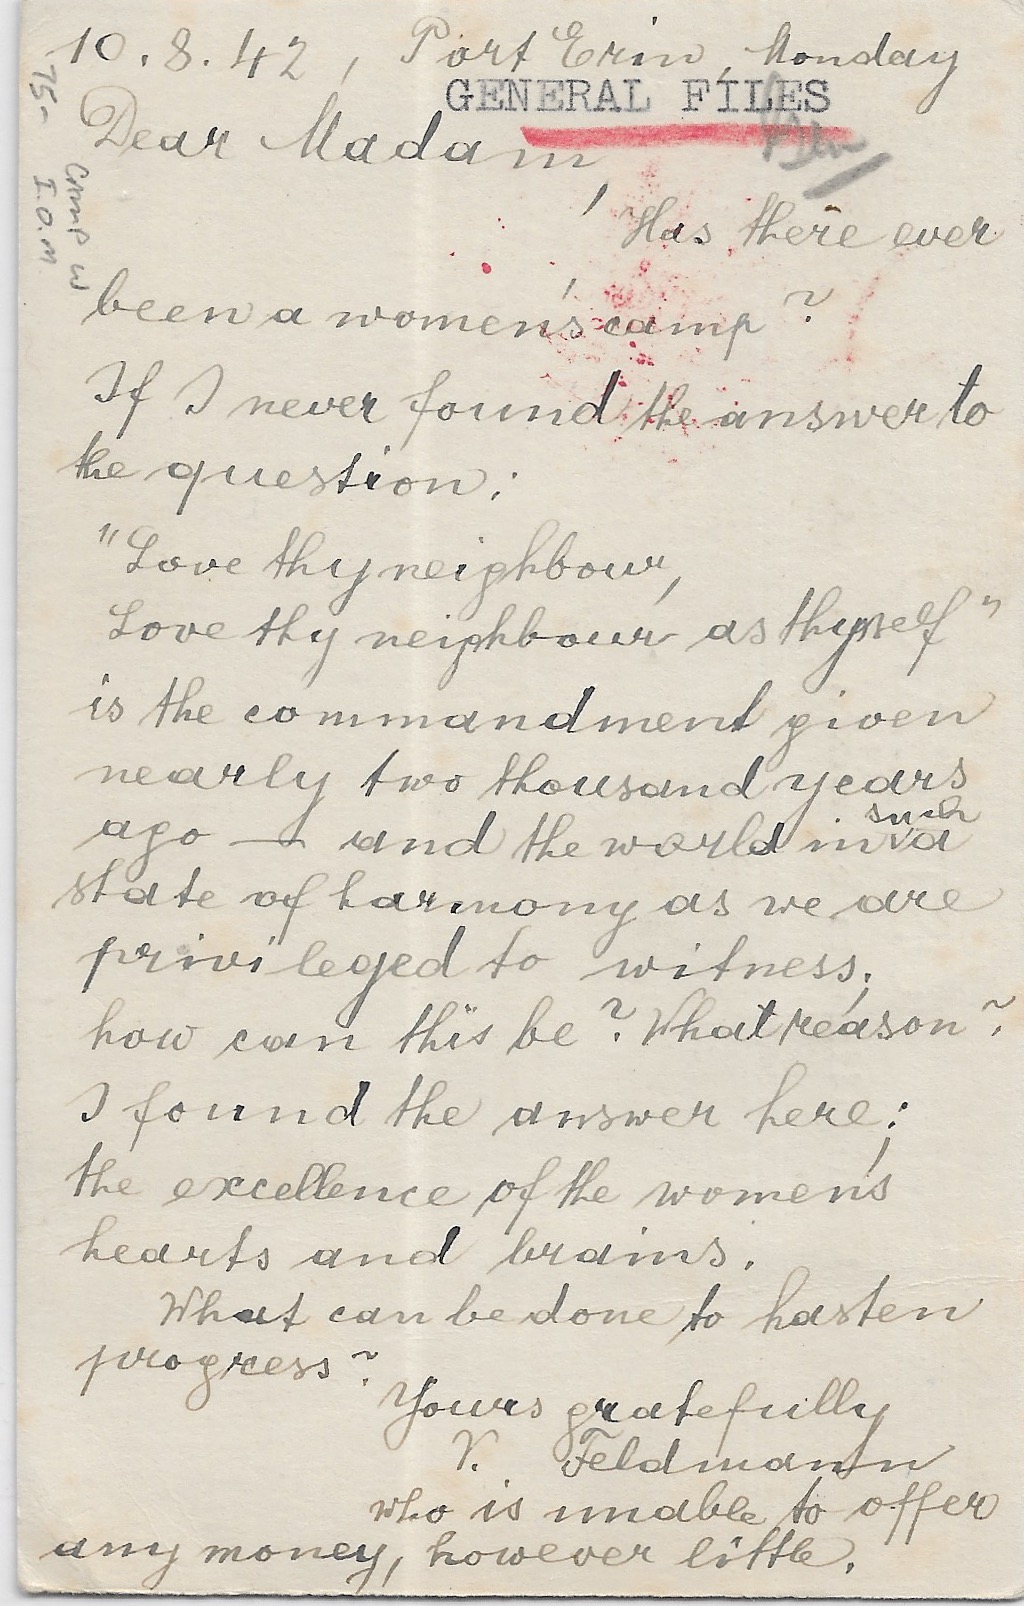 10.8.42, Port Erin, Monday
GENERAL FILES
75-
Camp W
I.O.M
Dear Madam,
Has there ever
been a women's camp?
If I never found the answer to
the question:
"Love thy neighbour,
Love thy neighbour as thyself"
is the commandment given
nearly two thousand years
ago — and the world in such a
state of harmony as we are
privileged to witness;
how can this be? What reason?
I found the answer here;
the excellence of the women's
hearts and brains.
What can be done to hasten
progress?
Yours gratefully
V. Feldmann
who is unable to offer
any money, however little.